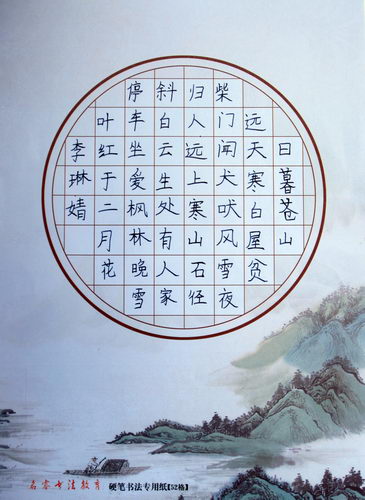 日暮苍山
远天寒白屋贫
柴门闻犬吠风雪夜
归人远上寒山石径
斜白云生处有人家
停车坐爱枫林晚雪
叶红于二月花
李琳婧
书法教育 硬笔书法专用纸【52格】